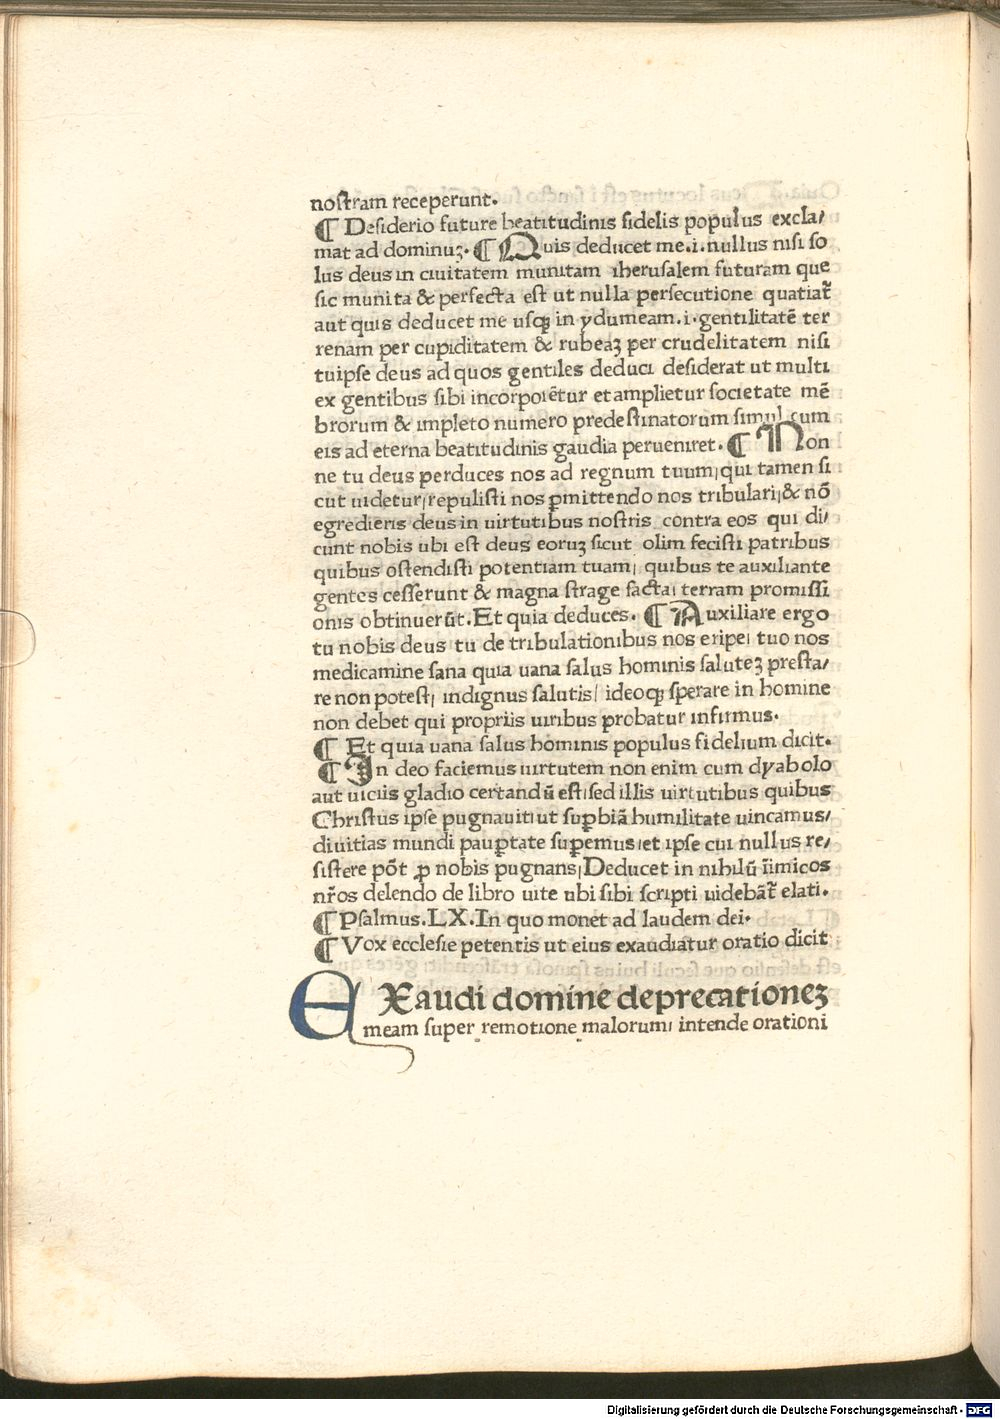 nostram receperunt.
¶ Desiderio future beatitudinis fidelis populus excla/
mat ad dominuꝫ. ¶ Quis deducet me.i.nullus nisi so
lus deus in ciuitatem munitam iherusalem futuram que
sic munita & perfecta est ut nulla persecutione quatiat᷑
aut quis deducet me usqꝫ in ydumeam.i.gentilitatē ter
renam per cupiditatem & rubeaꝫ per crudelitatem nisi
tuipse deus ad quos gentiles deduci desiderat ut multi
ex gentibus sibi incorporētur et amplietur societate mē
brorum & impleto numero predestinatorum simul cum
eis ad eterna beatitudinis gaudia perueniret. ¶ Non
ne tu deus perduces nos ad regnum tuum, qui tamen si
cut uidetur, repulisti nos ꝑmittendo nos tribulari, & nō
egredieris deus in uirtutibus nostris contra eos qui di/
cunt nobis ubi est deus eoruꝫ sicut olim fecisti patribus
quibus ostendisti potentiam tuam, quibus te auxiliante
gentes cesserunt & magna strage facta, terram promissi
onis obtinuerūt. Et quia deduces. ¶ Auxiliare ergo
tu nobis deus tu de tribulationibus nos eripe, tuo nos
medicamine sana quia uana salus hominis saluteꝫ presta/
re non potest, indignus salutis, ideoqꝫ sperare in homine
non debet qui propriis uiribus probatur infirmus.
¶ Et quia uana salus hominis populus fidelium dicit.
¶ In deo faciemus uirtutem non enim cum dyabolo
aut uiciis gladio certandū est, sed illis uirtutibus quibus
Christus ipse pugnauit, ut suꝑbiā humilitate uincamus/
diuitias mundi pauꝑtate suꝑemus, et ipse cui nullus re/
sistere pōt ꝓ nobis pugnans, Deducet in nihilū īimicos
nr̄os delendo de libro uite ubi sibi scripti uidebāt᷑ elati.
¶ Psalmus.LX. In quo monet ad laudem dei.
¶ Vox ecclesie petentis ut eius exaudiatur oratio dicit
EXaudi domine deprecationeꝫ
meam super remotione malorum, intende orationi
Digitalisierung gefördert durch die Deutsche Forschungsgemeinschaft - DFG